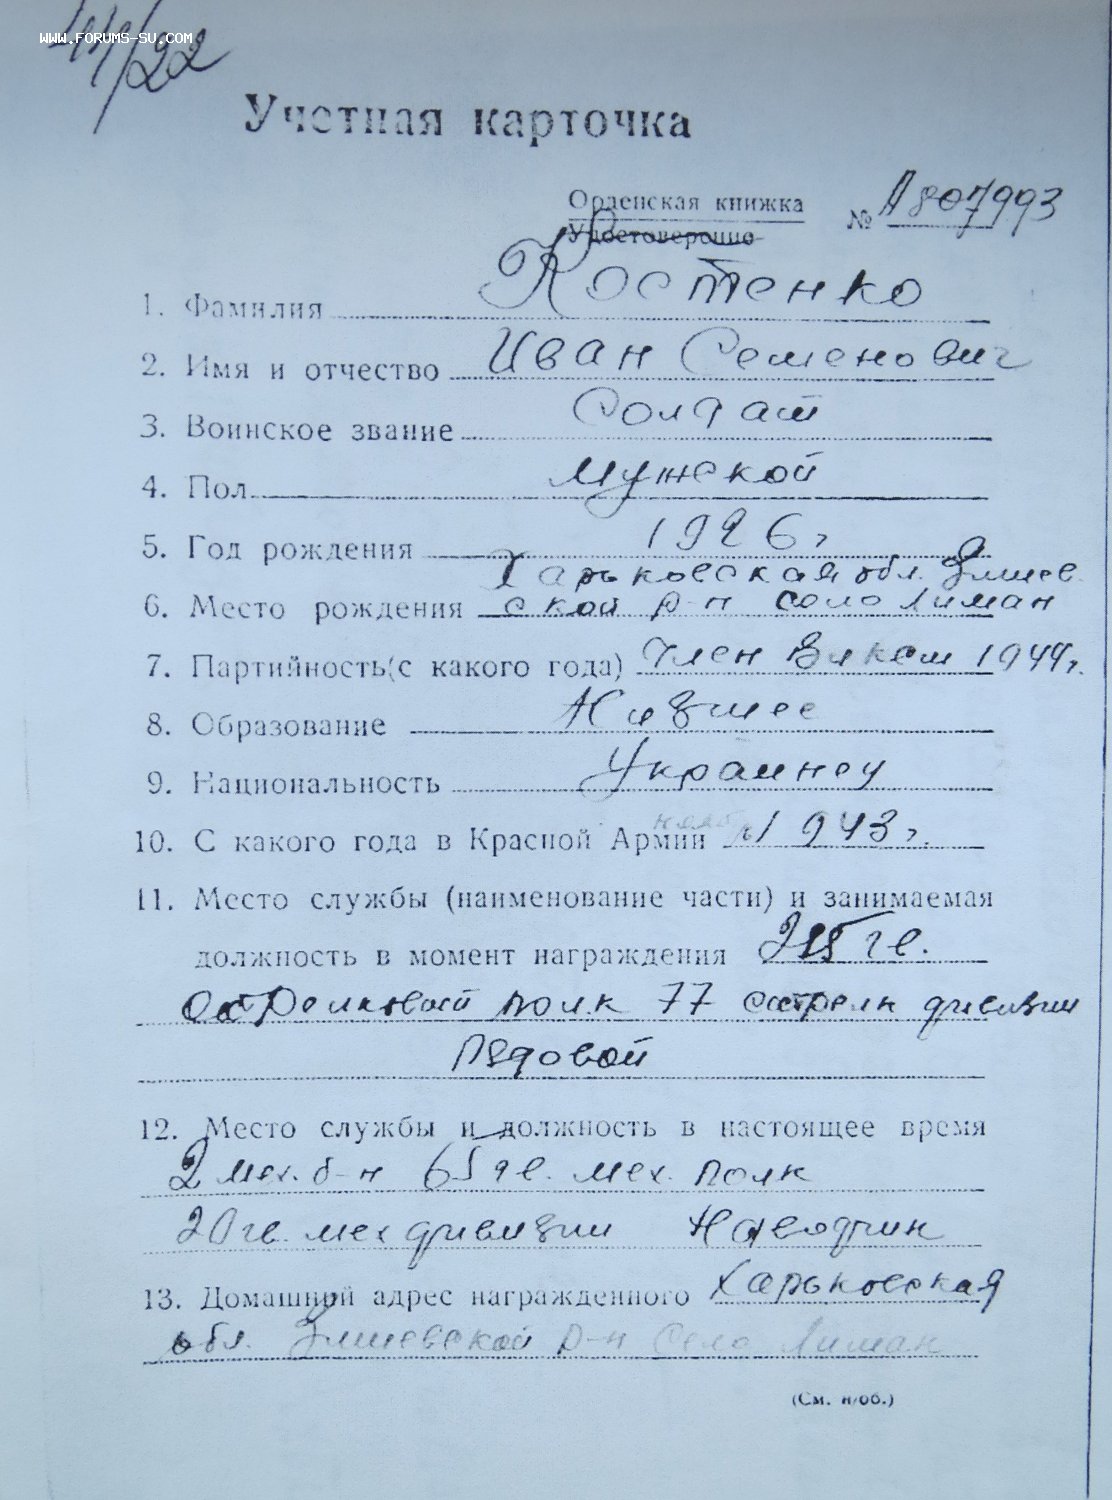 WWW.FORUMS-SU.COM
/22
Учетная карточка
Орденская книжка
Удостоверение
№ А807993
1. Фамилия Костенко
2. Имя и отчество Иван Семенович
3. Воинское звание Солдат
4. Пол мужской
5. Год рождения 1926 г
Харьковская обл. Змиев
6. Место рождения ской р-н село Лиман
7. Партийность (с какого года) член Влксм 1944 г.
8. Образование Низшее
9. Национальность Украинец
10. С какого года в Красной Армии 1943 г.
11. Место службы (наименование части) и занимаемая
должность в момент награждения гв.
стрелковый полк 77 стрелк дивизии
Рядовой
12. Место службы и должность в настоящее время
2 мех. б-н 65 гв. мех. полк
20 гв. мех дивизии Наводчик
13. Домашний адрес награжденного Харьковская
обл. Змиевской р-н село Лиман
(См. н/об.)